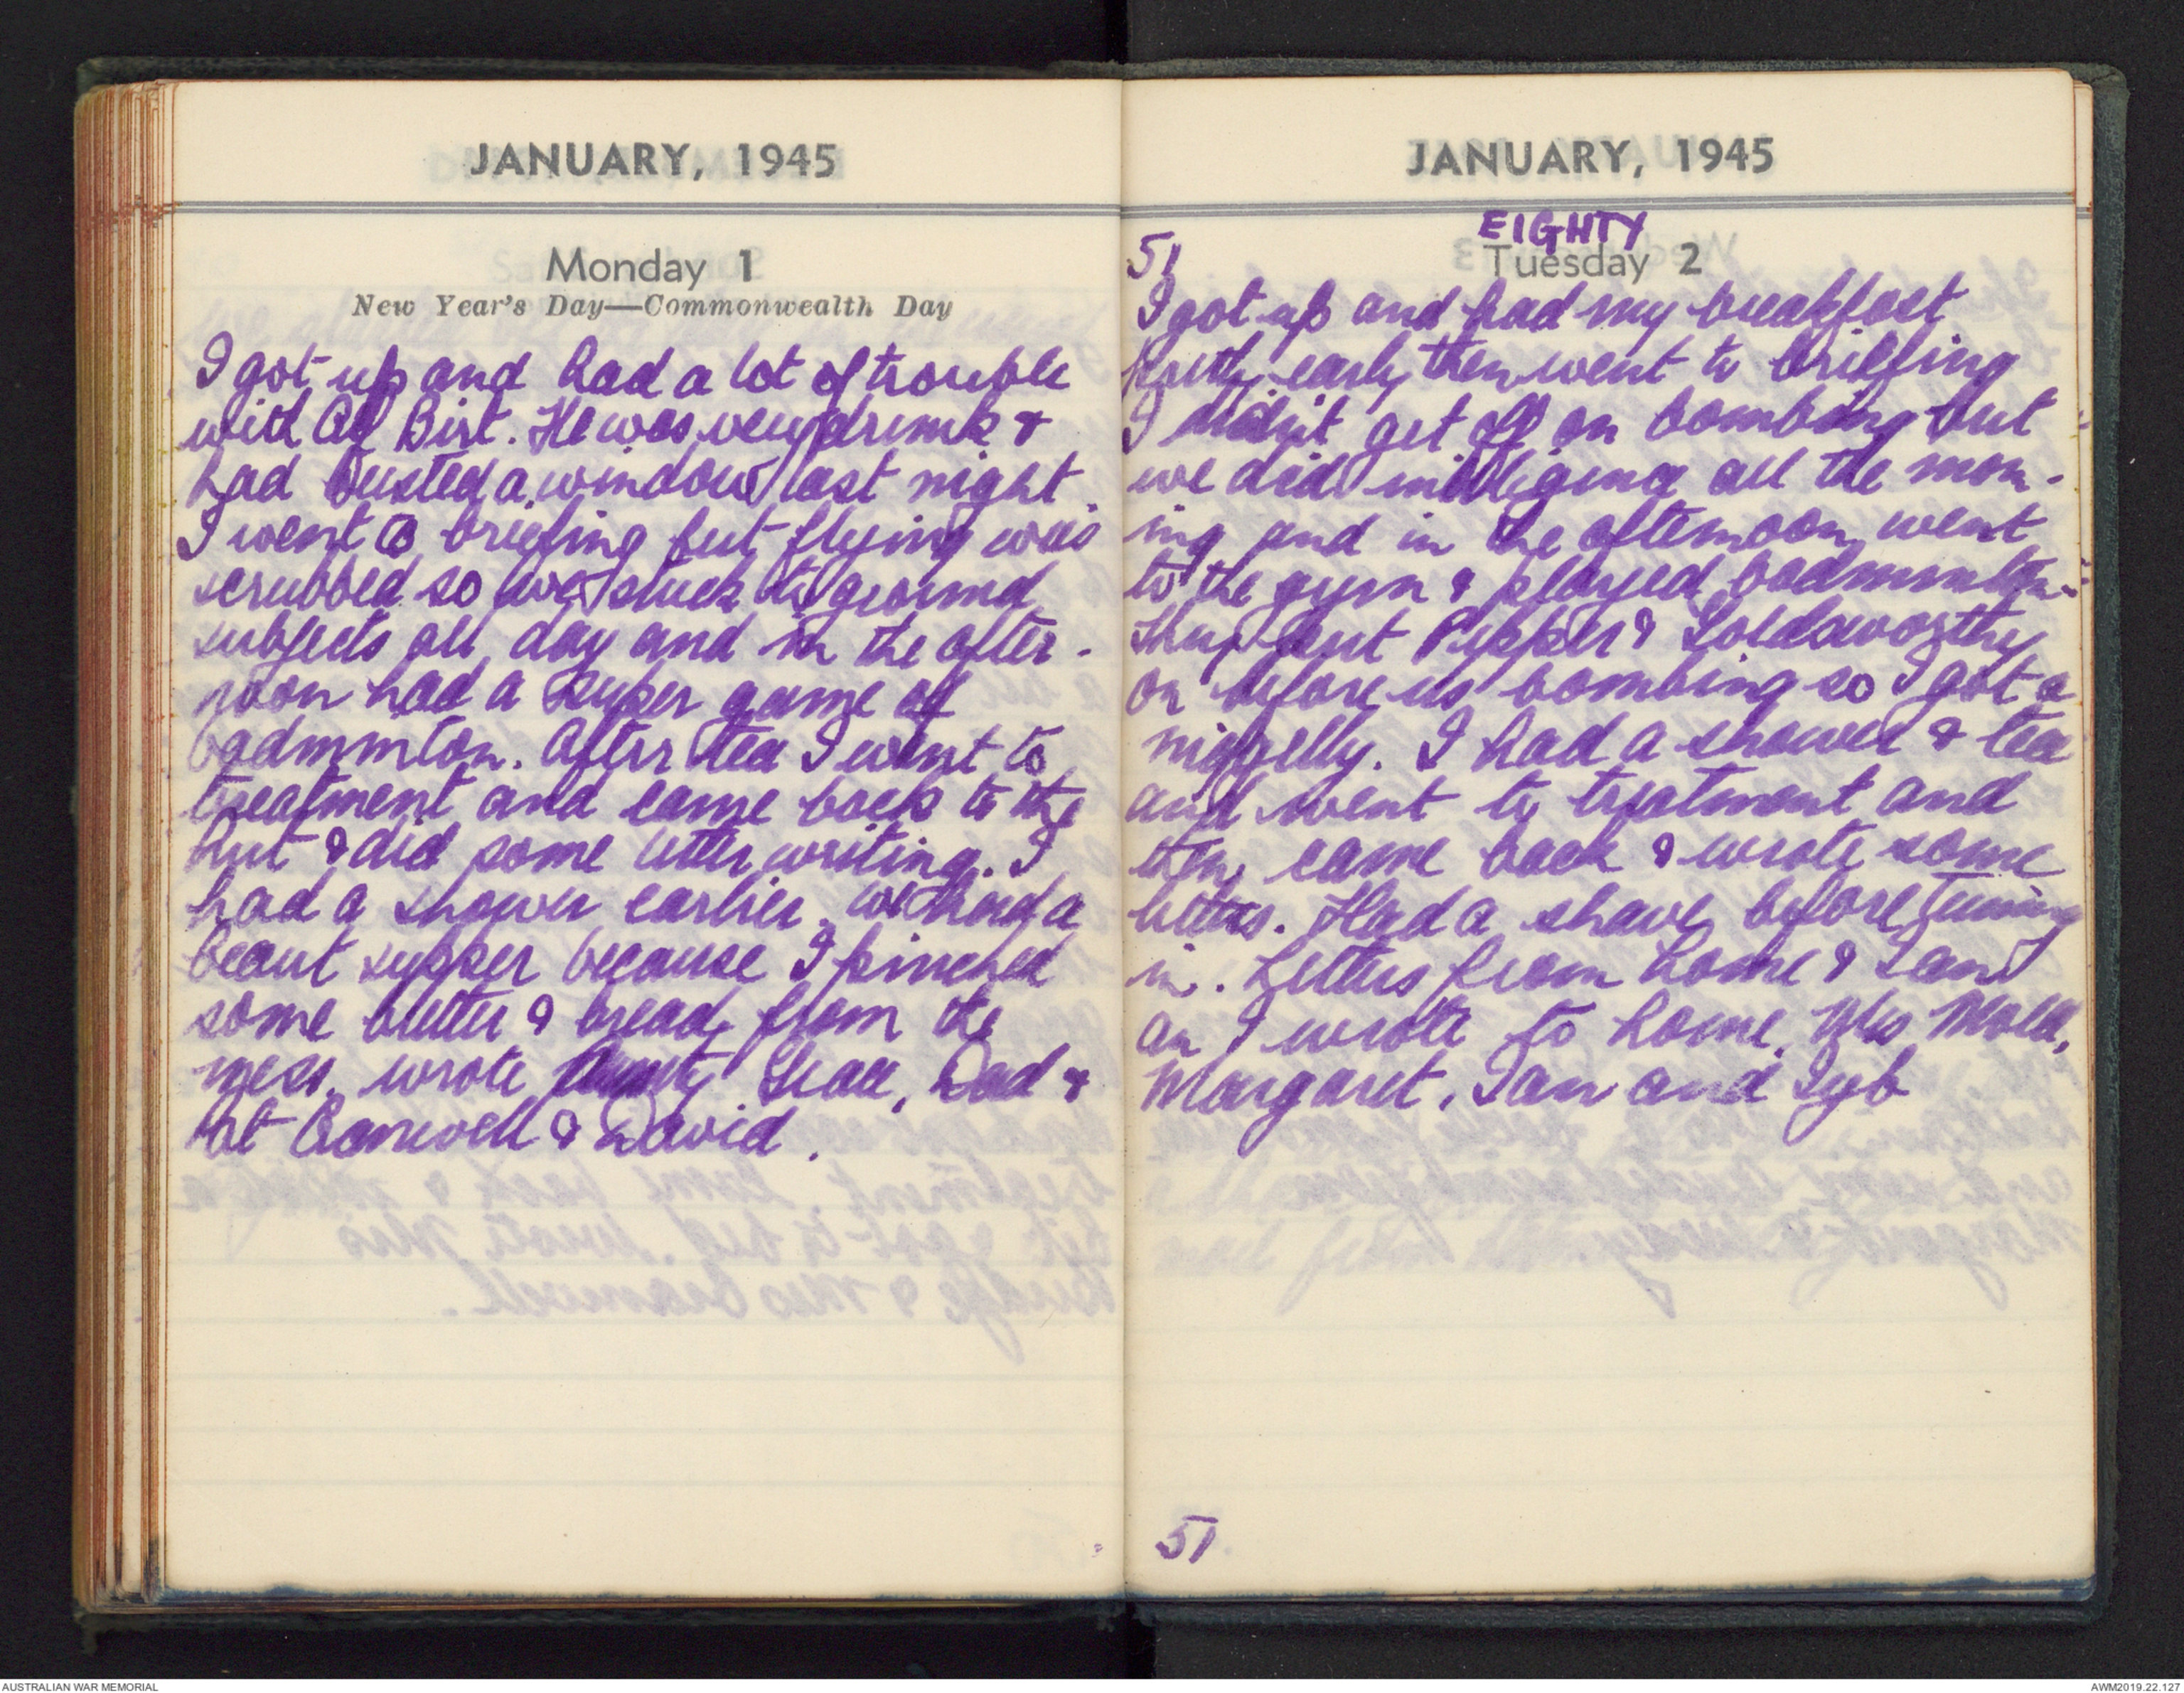 JANUARY, 1945
Monday 1
New Year's Day—Commonwealth Day
I got up and had a lot of trouble
with Al Birt. He was very drunk &
had busted a window last night.
I went to briefing but flying was
scrubbed so we stuck to ground
subjects all day and in the after-
noon had a super game of
badminton. After tea I went to
treatment and came back to the
hut & did some letter writing. I
had a shower earlier. We had a
beaut supper because I pinched
some butter & bread from the
mess. wrote Aunty Grace, Dad &
at Bramwell & David.
JANUARY, 1945
EIGHTY
51
Tuesday 2
I got up and had my breakfast
pretty early then went to briefing
I didn't get off on bombing but
we did intelligence all the morn-
ing and in the afternoon went
to the gym & played badminton.
They put Pepper & Goldsworthy
on before us bombing so I got a
niggelly. I had a shower & tea
and went to treatment and
then came back & wrote some
letters. Had a shave before turning
in. Letters from home & Ian
an I wrote to home, Mrs
Margaret, Ian and Syb
51
AUSTRALIAN WAR MEMORIAL
AWM2019.22.127